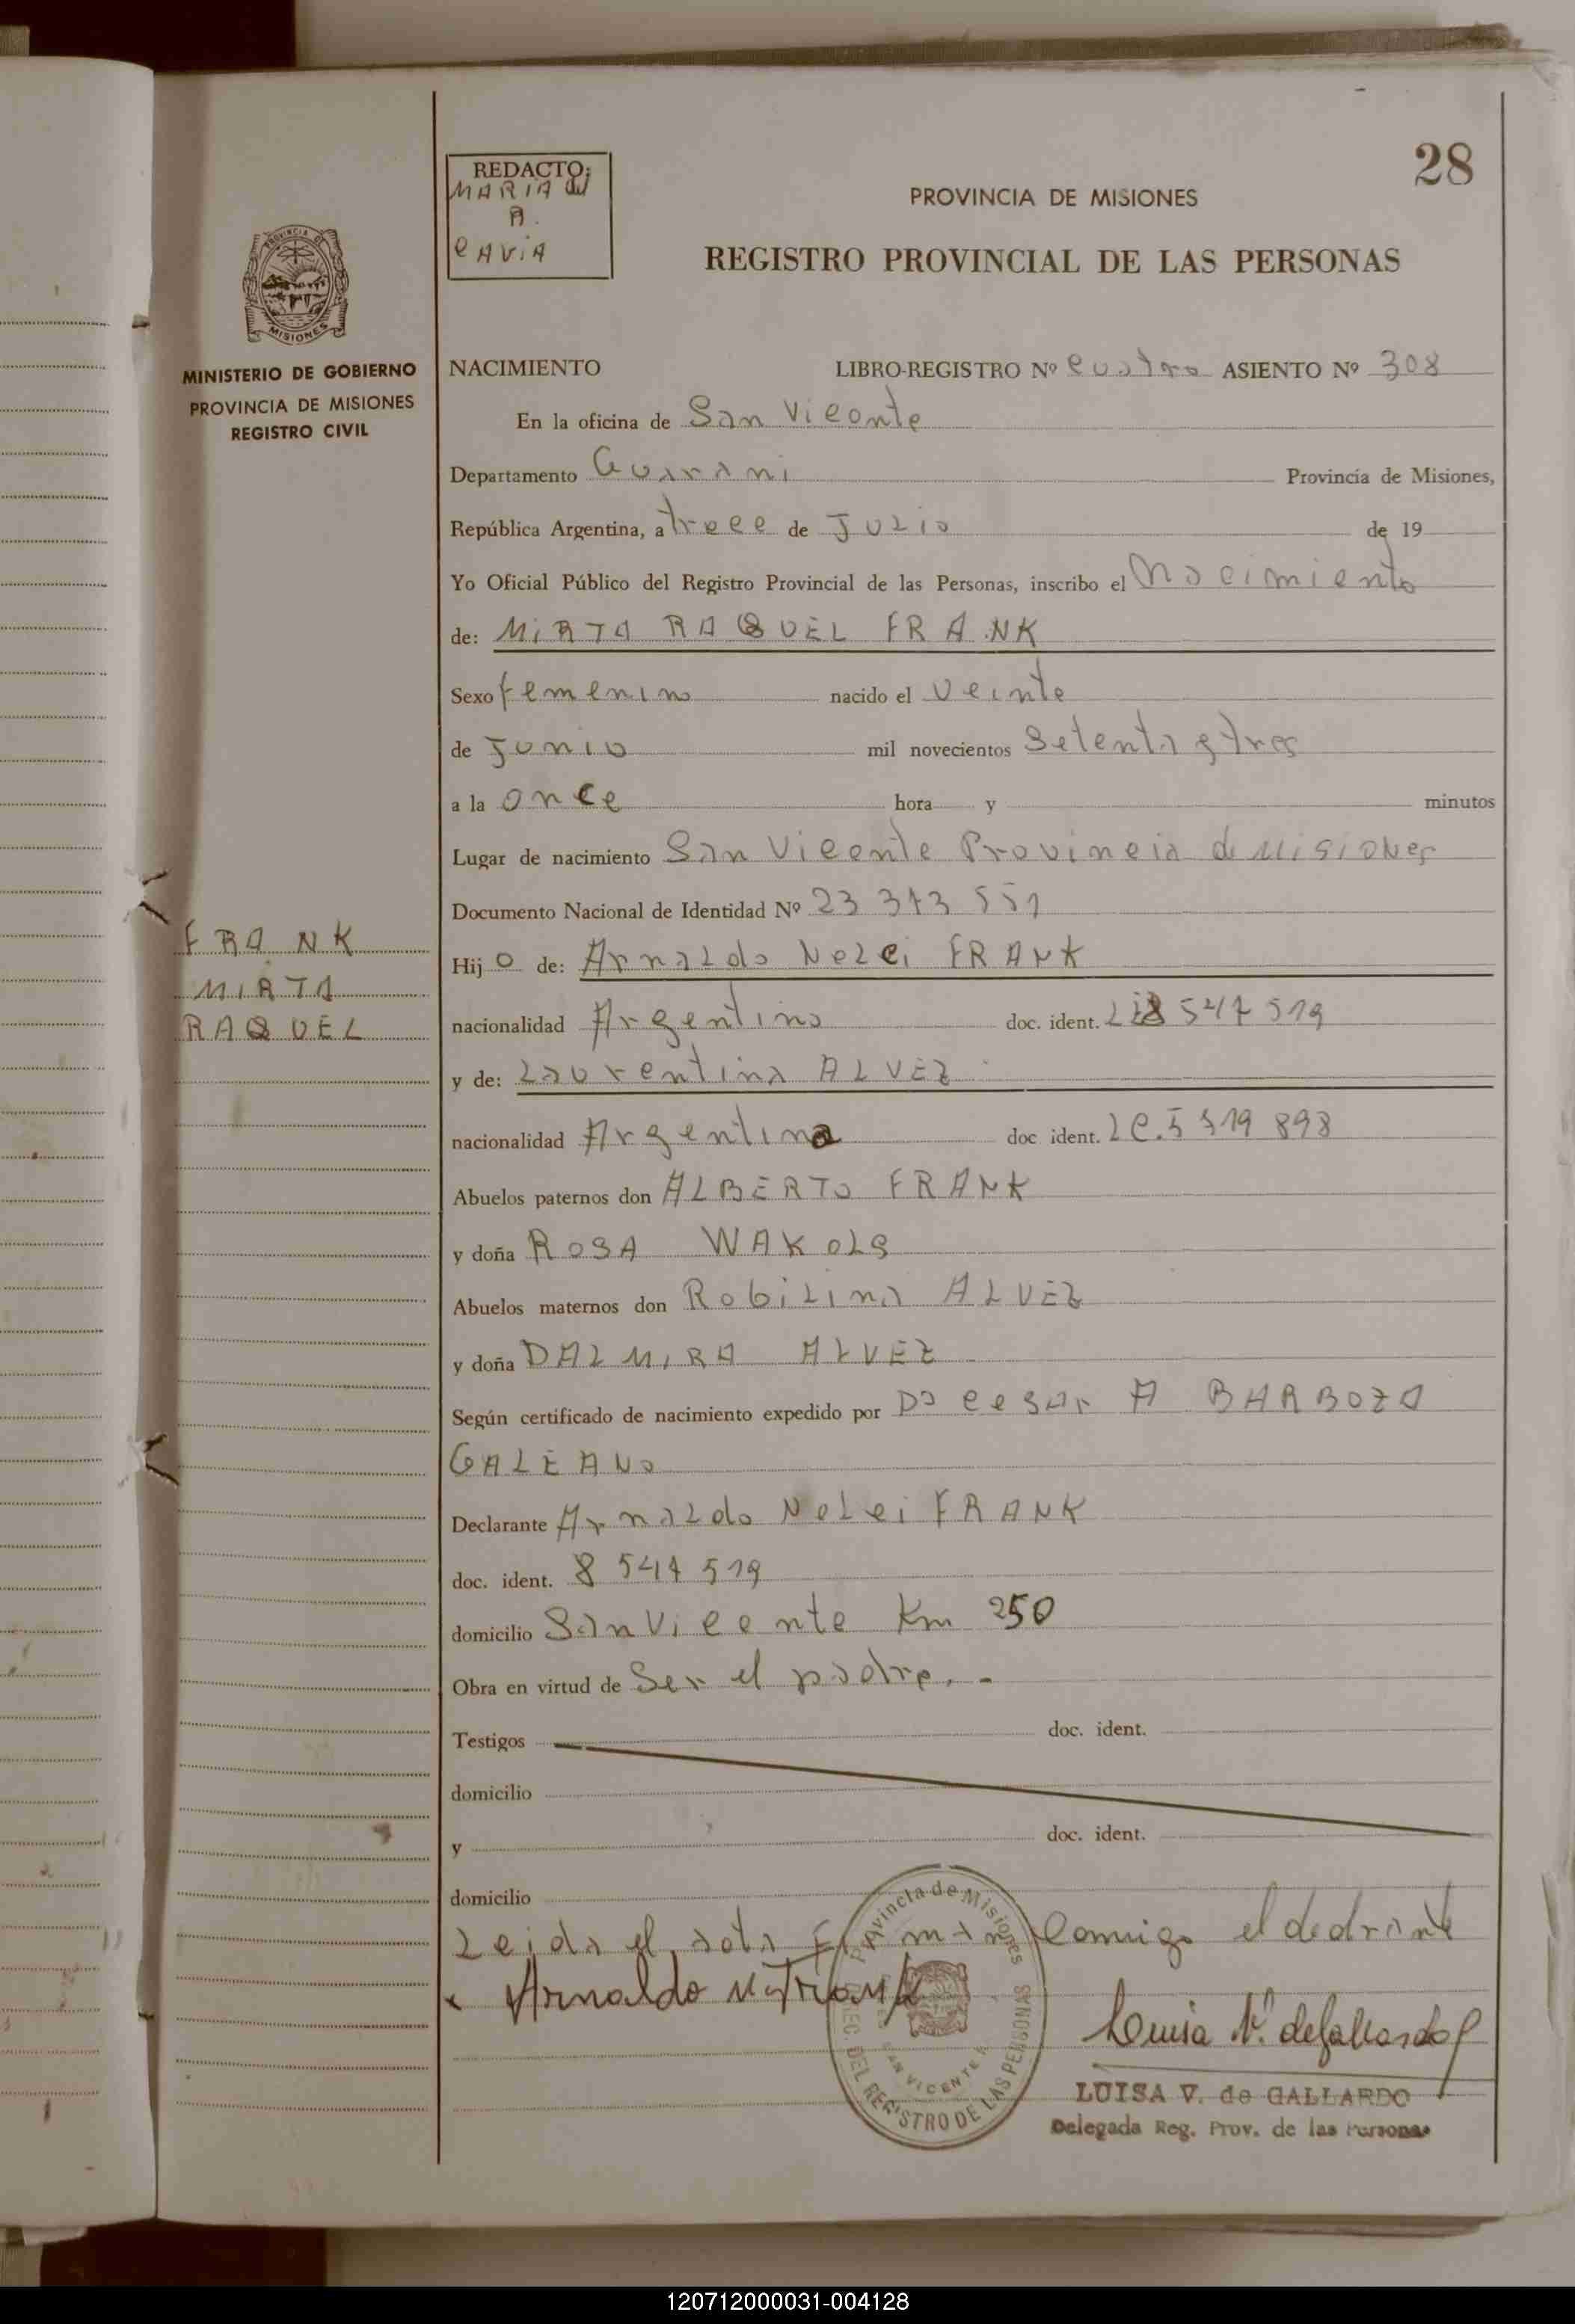 28
REDACTO:
MARIA del
A.
CAVIA
PROVINCIA DE MISIONES
REGISTRO PROVINCIAL DE LAS PERSONAS
PROVINCIA DE
MISIONES
MINISTERIO DE GOBIERNO
PROVINCIA DE MISIONES
REGISTRO CIVIL
NACIMIENTO LIBRO-REGISTRO Nº Cuatro ASIENTO Nº 308
En la oficina de San Vicente
Departamento Guarani Provincia de Misiones,
República Argentina, a trece de Julio de 19
Yo Oficial Público del Registro Provincial de las Personas, inscribo el Nacimiento
de: MIRTA RAQUEL FRANK
Sexo femenino nacido el veinte
de Junio mil novecientos Setenta y tres
a la once hora y minutos
Lugar de nacimiento San Vicente Provincia de Misiones
Documento Nacional de Identidad Nº 23 373 551
FRANK
MIRTA
RAQUEL
Hij o de: Arnaldo Nelci FRANK
nacionalidad Argentino doc. ident. 8 547 519
y de: Laurentina ALVEZ
nacionalidad Argentina doc. ident. LC. 898
Abuelos paternos don ALBERTO FRANK
y doña ROSA WAKOLS
Abuelos maternos don Robilina ALVEZ
y doña DALMIRA ALVEZ
Según certificado de nacimiento expedido por Do Cesar A BARBOZA
GALEANO
Declarante Arnaldo Nelci FRANK
doc. ident. 8 547 519
domicilio San Vicente Km 250
Obra en virtud de Ser el padre. -
Testigos doc. ident.
domicilio
y doc. ident.
domicilio
Leida el acta Firman Comigo el declarante
Arnaldo N. Frank
Provincia de Misiones
DIREC. DEL REGISTRO DE LAS PERSONAS
SAN VICENTE
Luisa V. de Gallardo
LUISA V. de GALLARDO
Delegada Reg. Prov. de las Personas
120712000031-004128